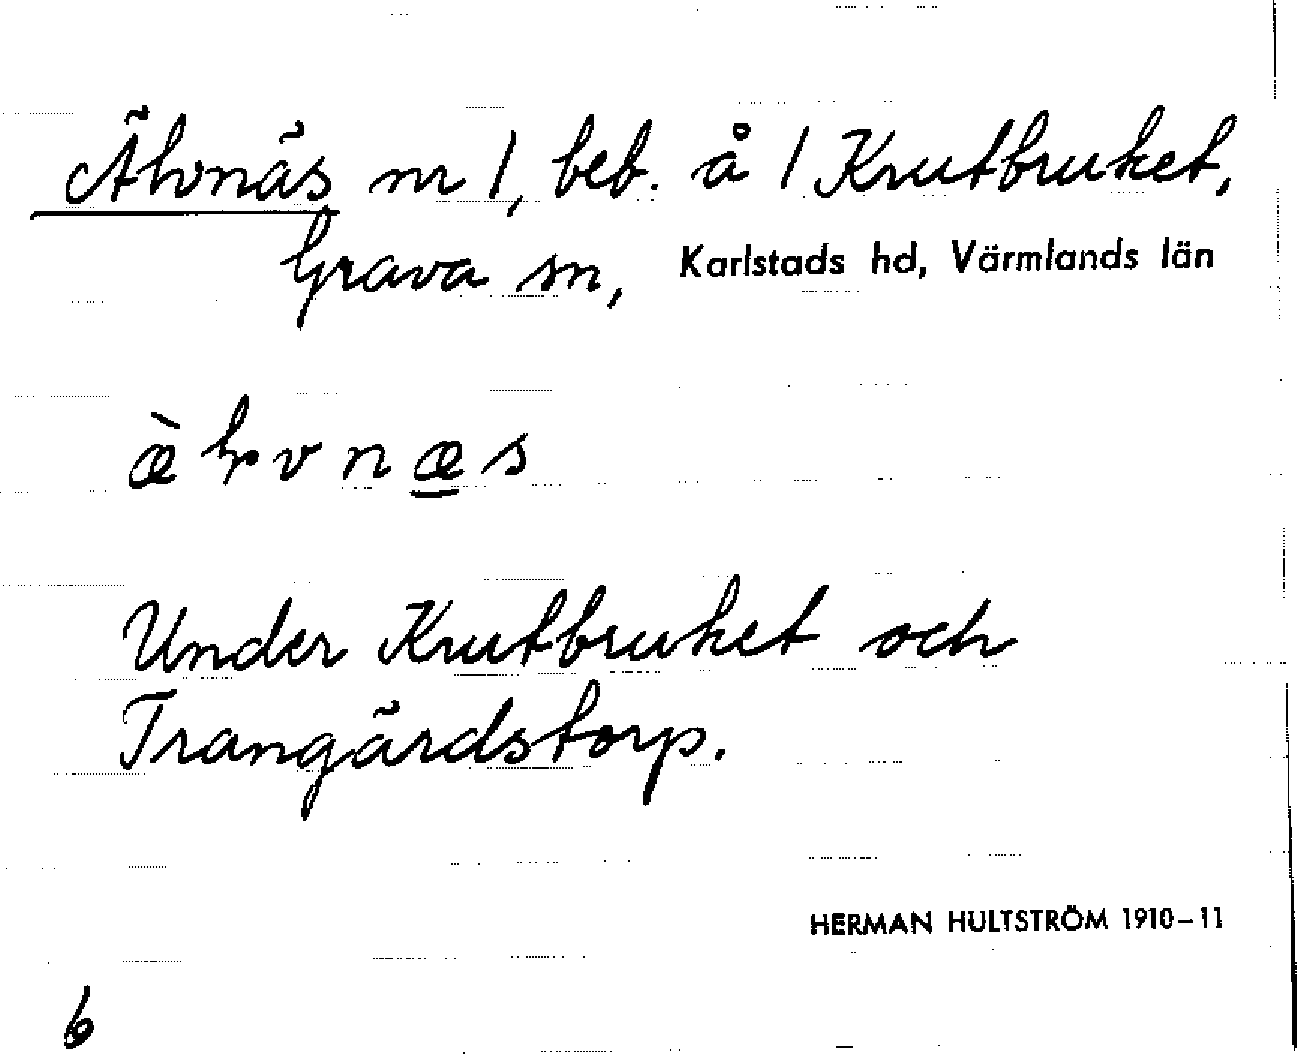 Älvnäs nr 1, beb. å 1 Krutbruket,
Grava sn, Karlstads hd, Värmlands län
Under Krutbruket och
Trangärdstorp.
HERMAN HULTSTRÖM 1910–11
6